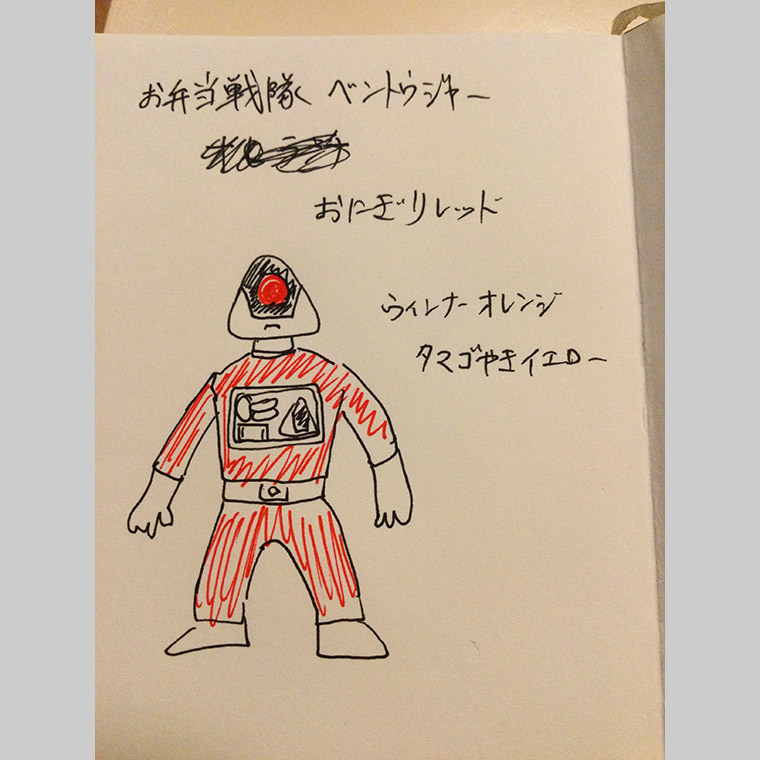 お弁当戦隊 ベントウジャー
おにぎりレッド
ウィンナーオレンジ
タマゴやきイエロー